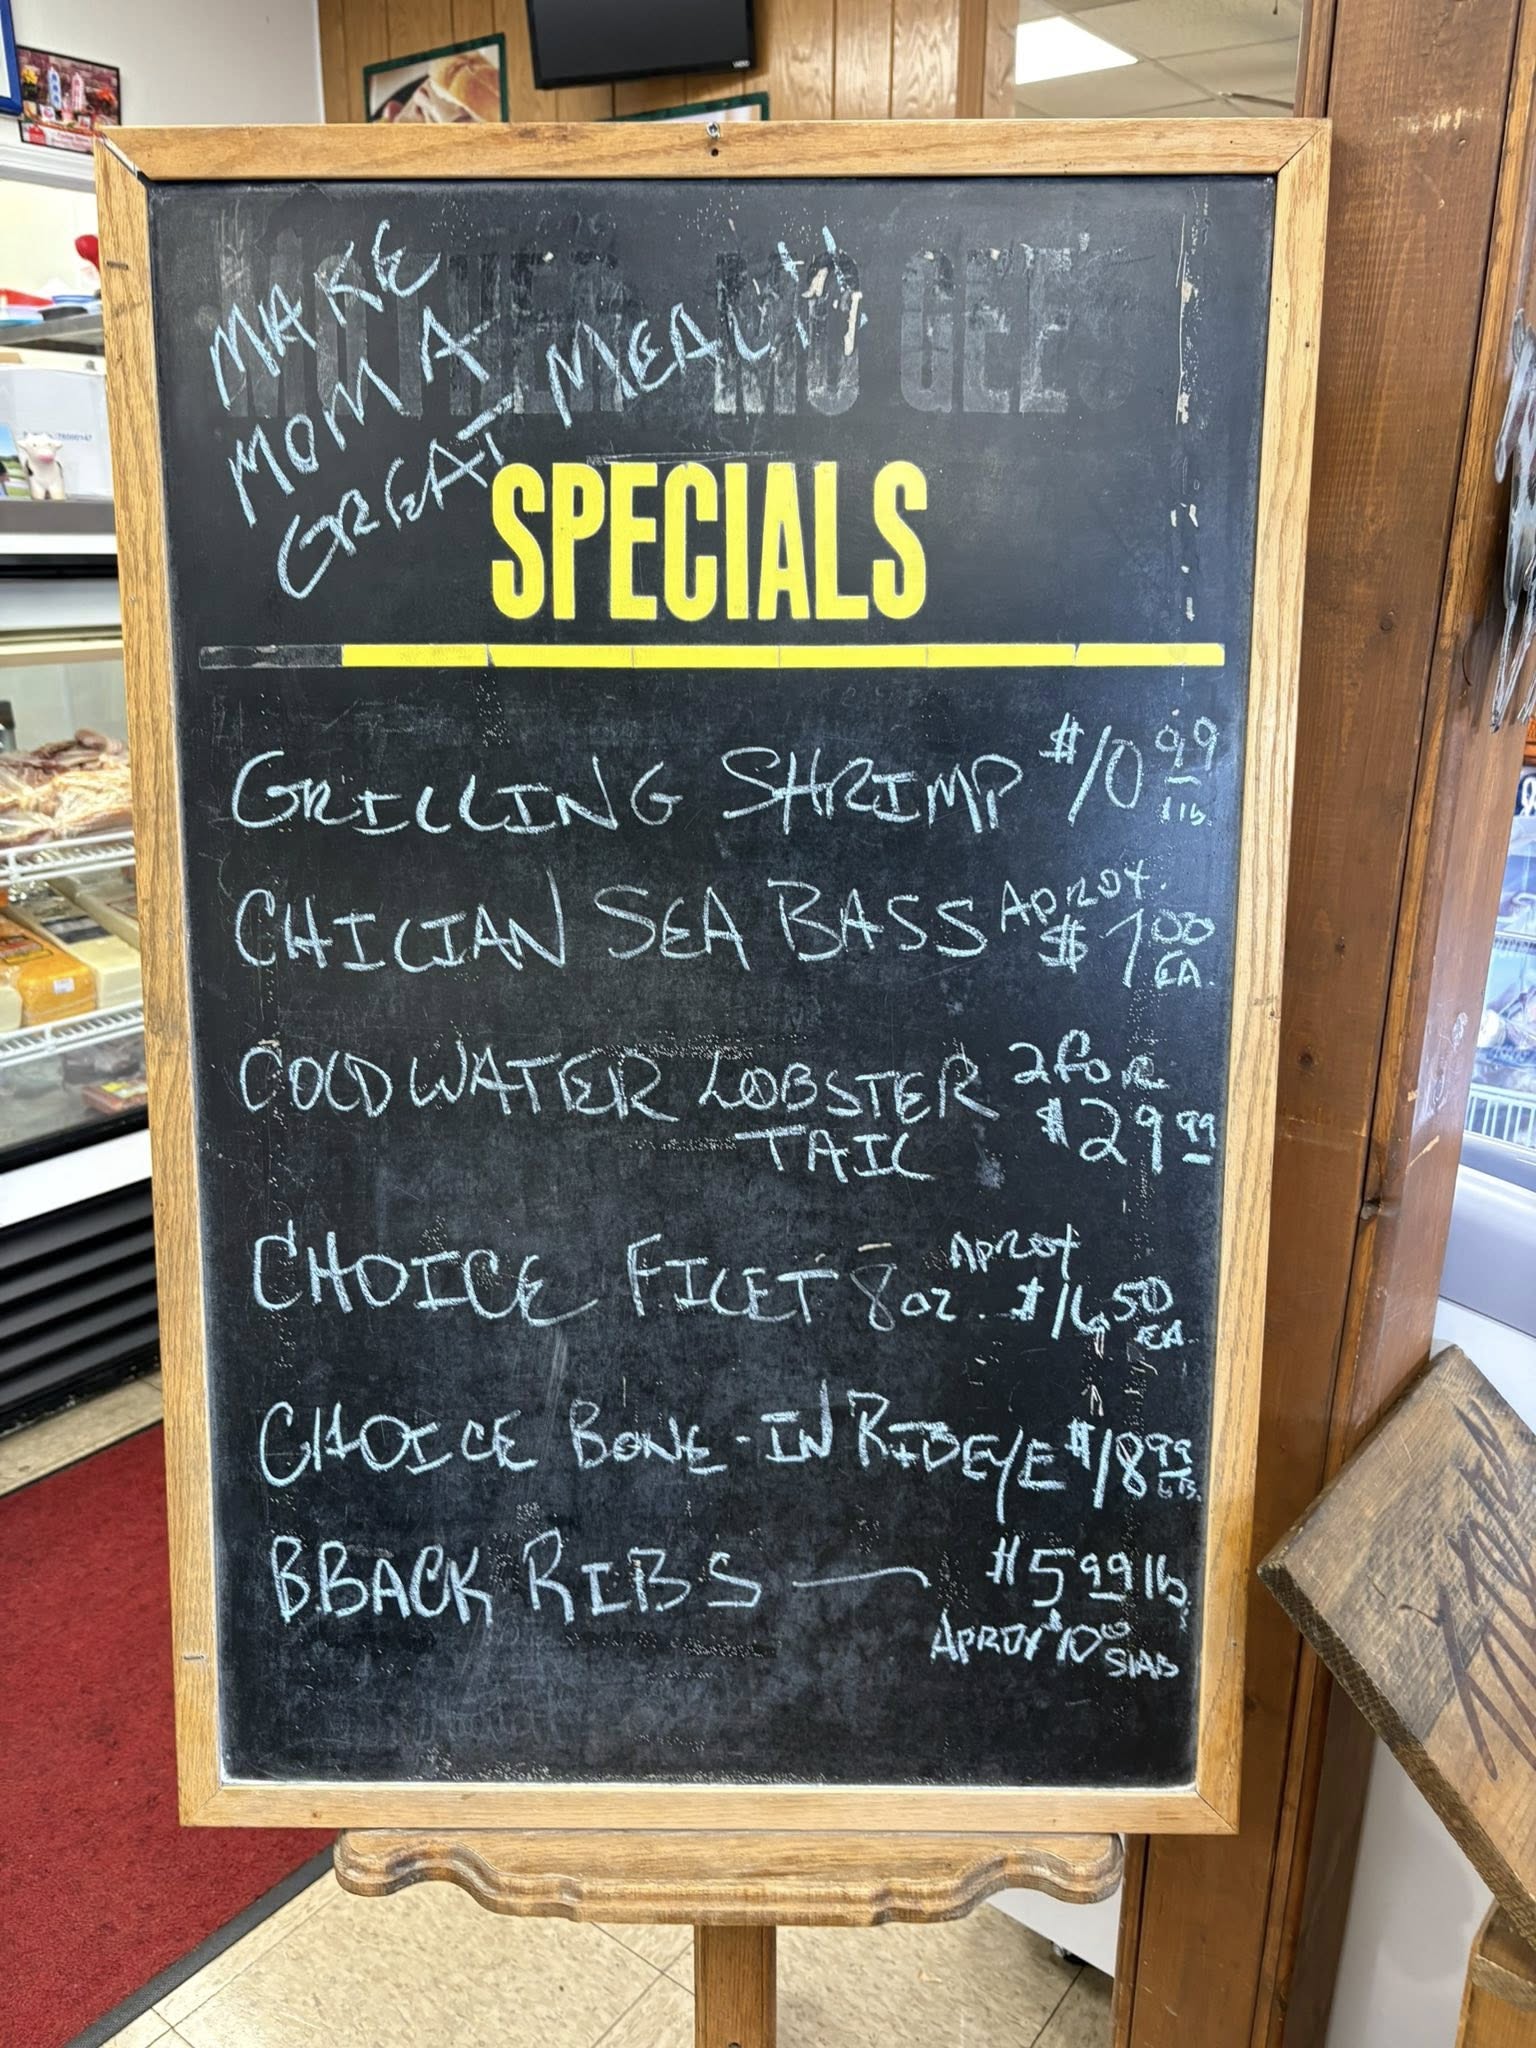 MAKE
MOM A
GREAT MEAL!!
MOTHER MO GEE'S
SPECIALS
GRILLING SHRIMP $10.99 1lb.
CHILIAN SEA BASS APROX. $7.00 EA.
COLDWATER LOBSTER 2 for
TAIL $29.99
CHOICE FILET 8oz. APROX $16.50 EA.
CHOICE BONE-IN RIBEYE $18.99 LB.
B.BACK RIBS — $5.99 lb
APROX $10.00 SLAB
VIZIO